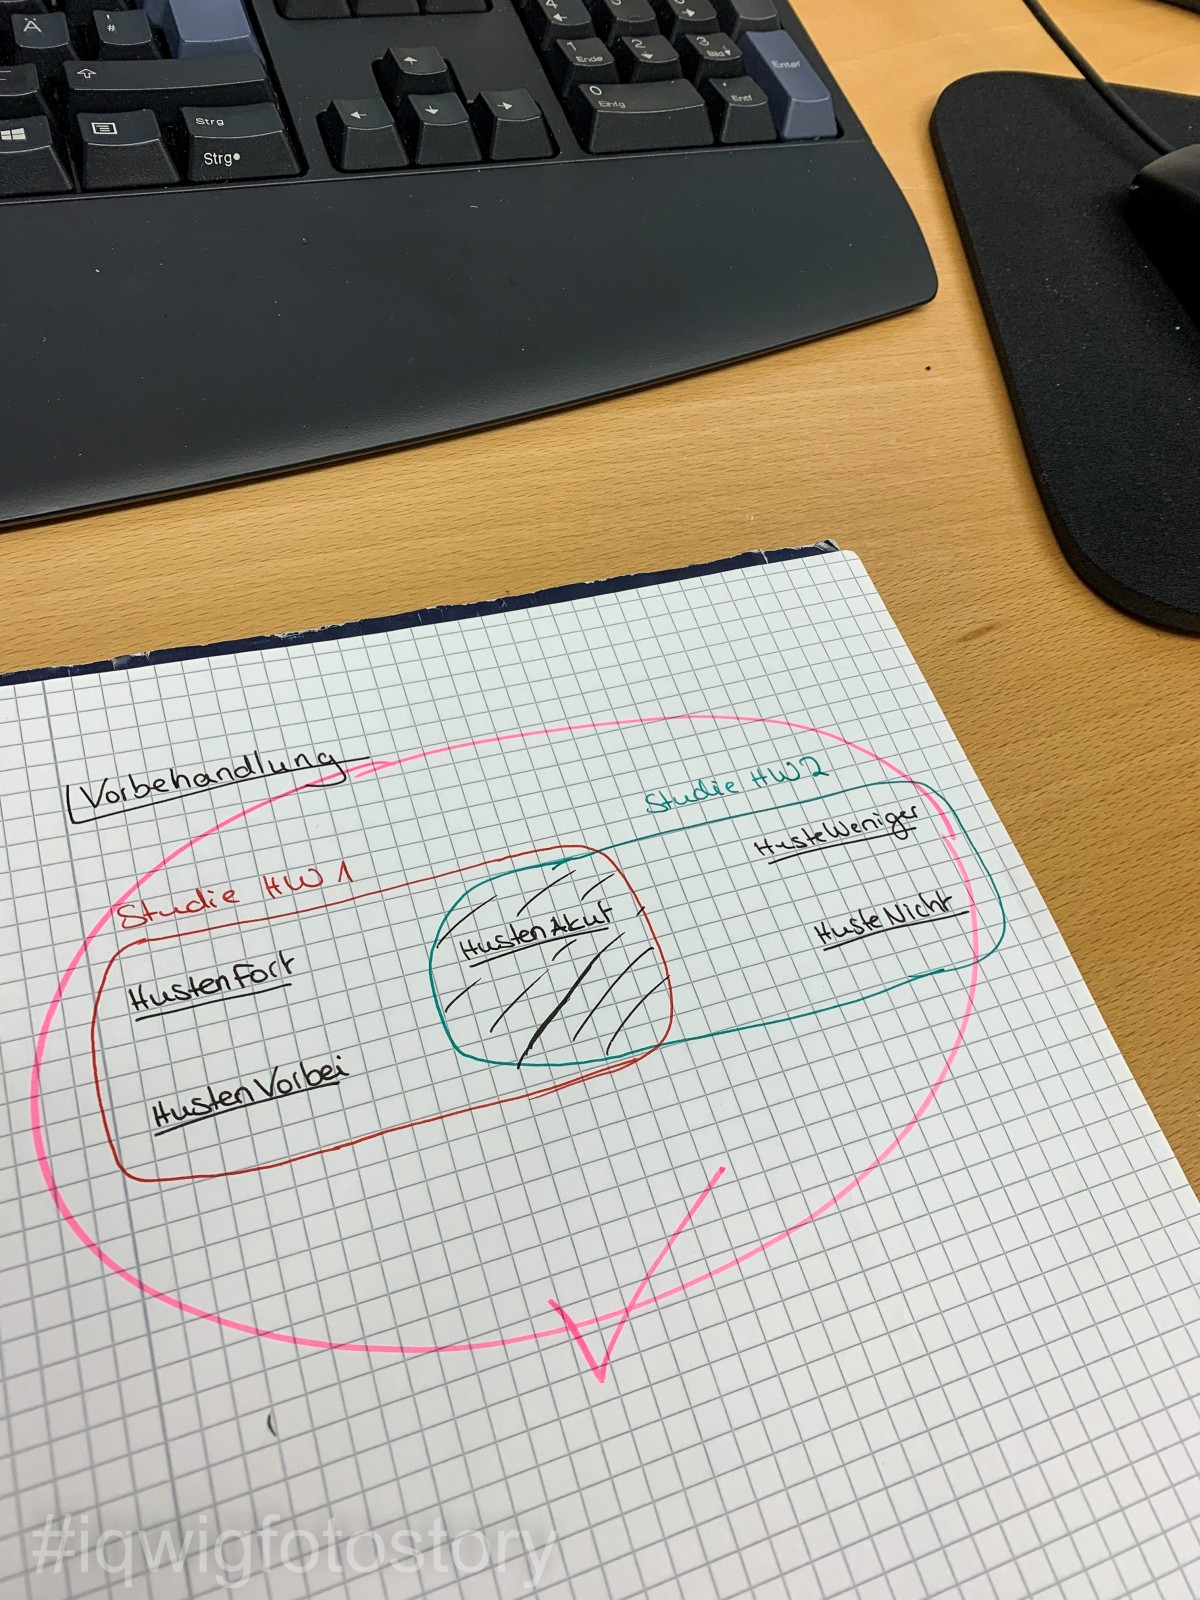 Ä
#
4
1
Ende
2
3
Bild
Enter
0
Einfg
Entf
Strg
Strg
Vorbehandlung
Studie HW2
HusteWeniger
Studie HW1
HustenAkut
HusteNicht
HustenFort
HustenVorbei
#iqwigfotostory